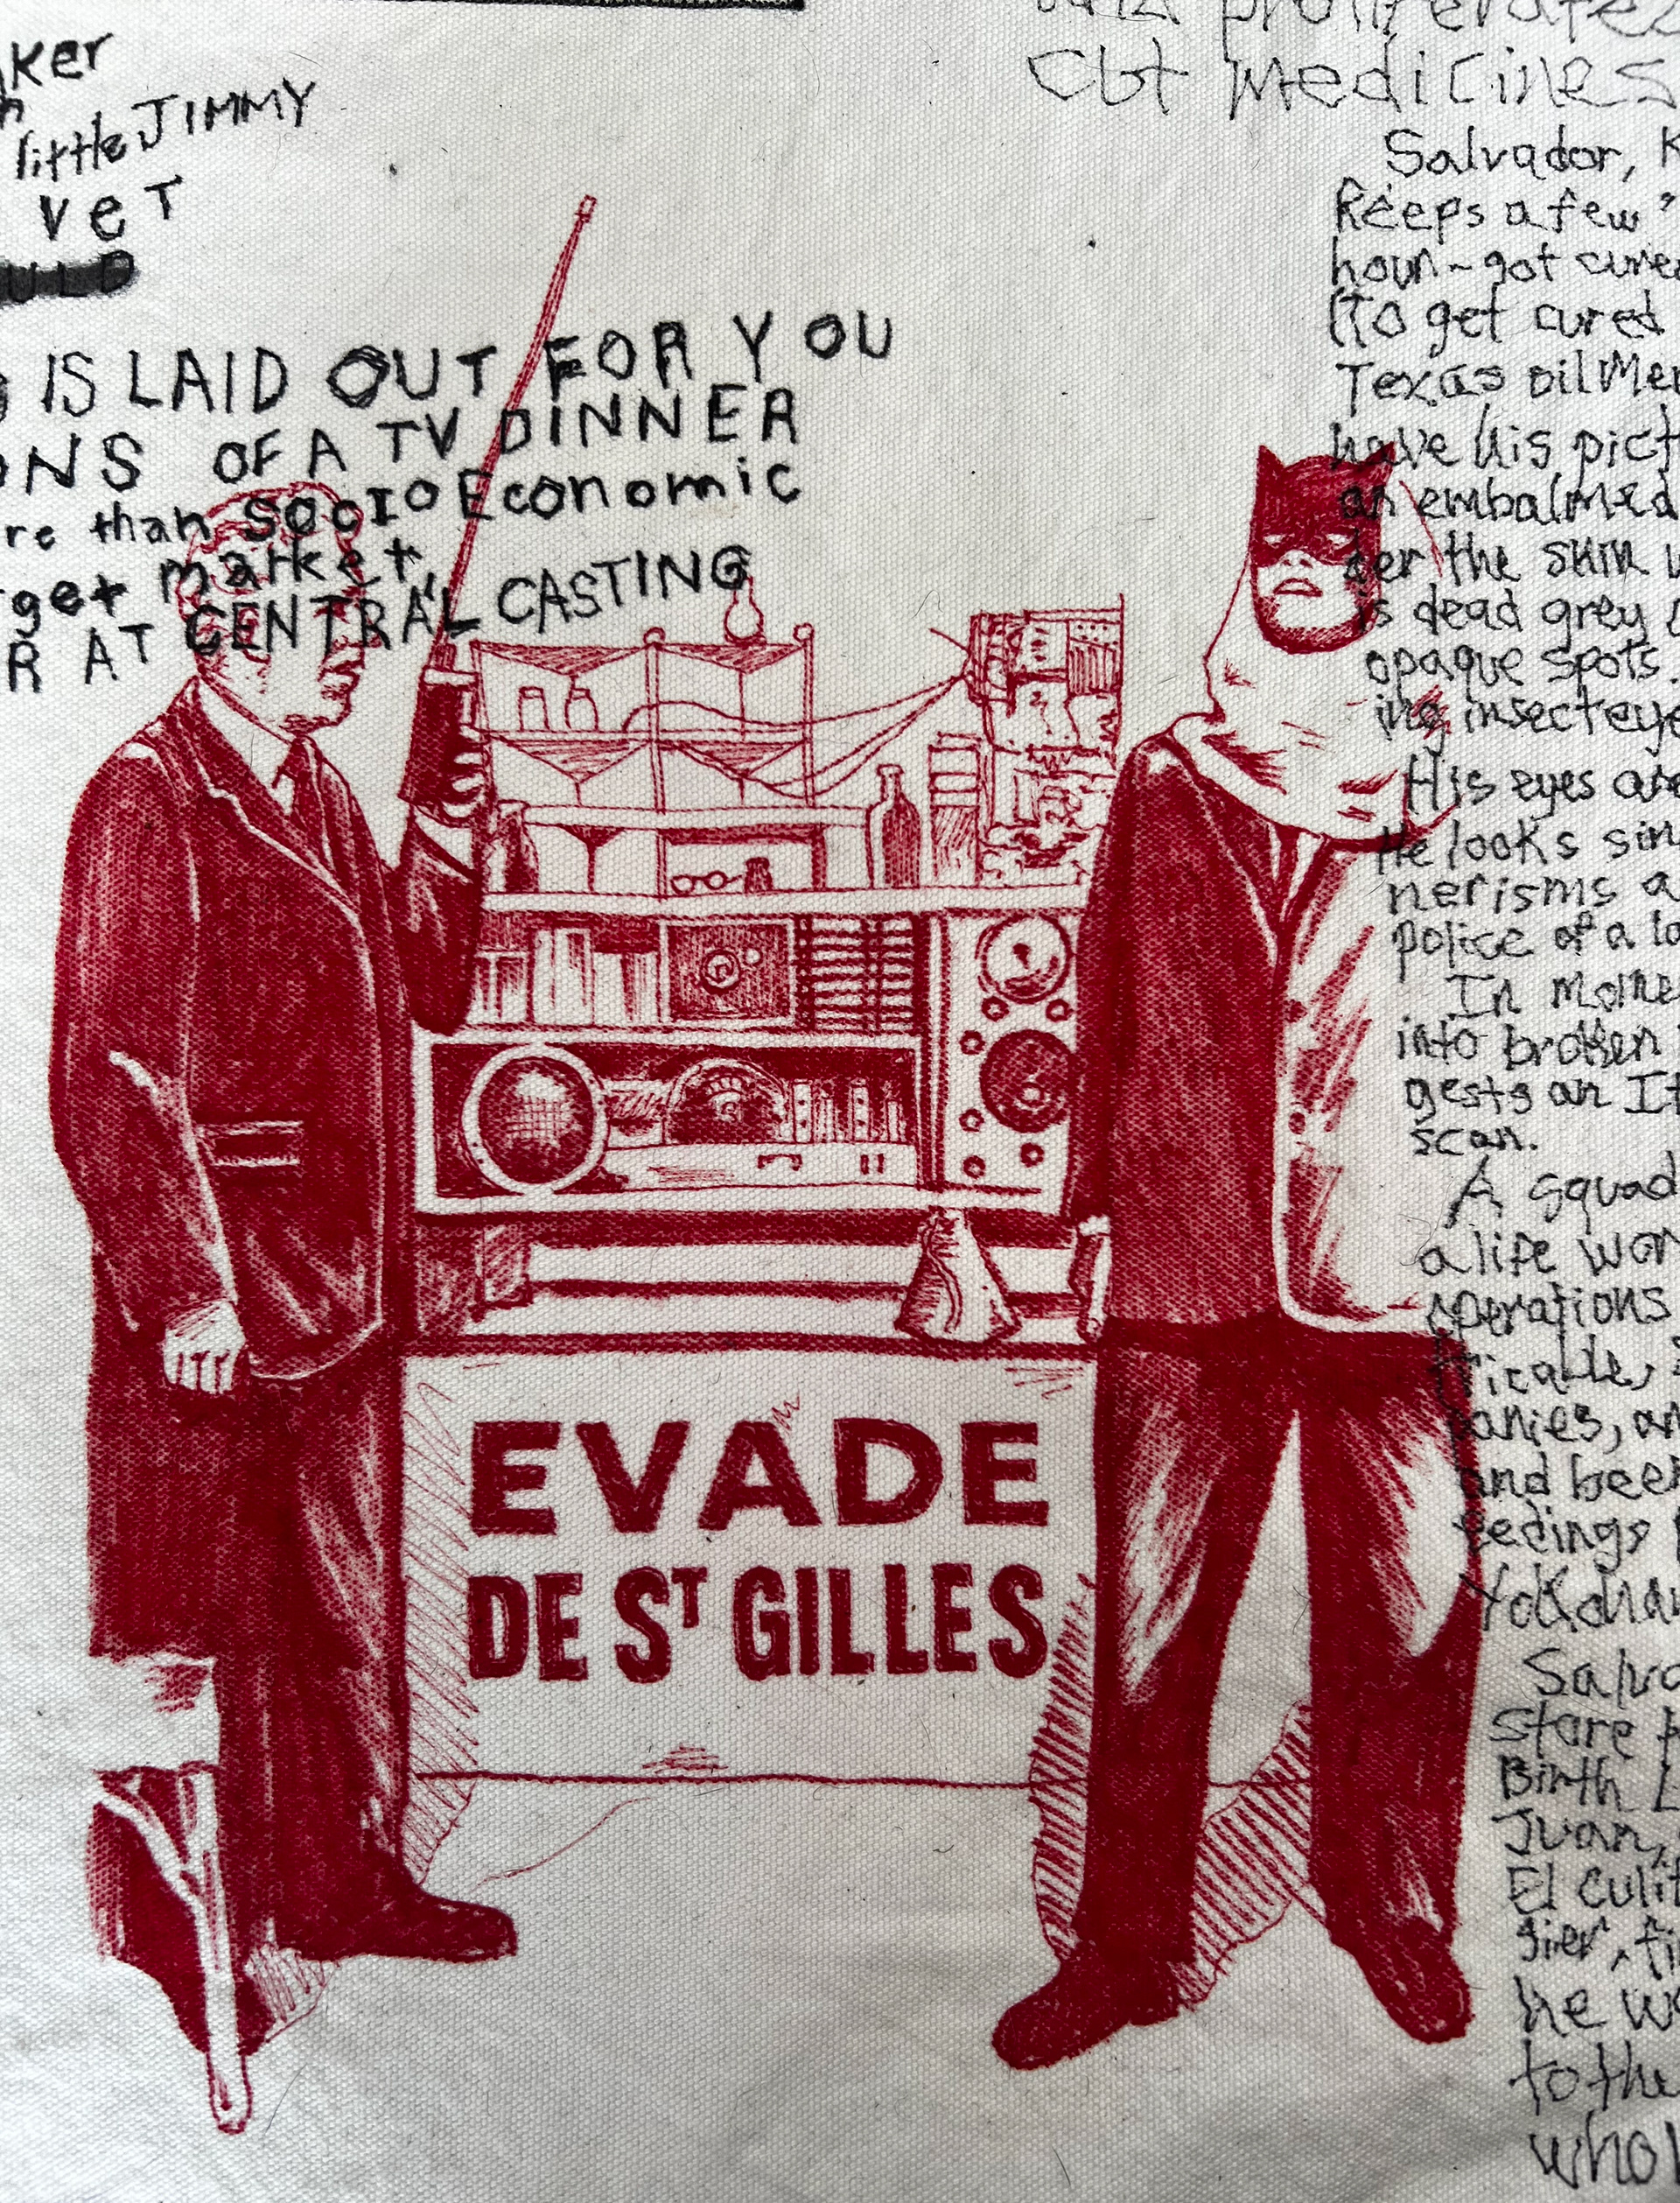 ker
little JIMMY
VeT
ULD
IS LAID OUT FOR YOU
ONS OF A TV DINNER
re than SocioEconomic
rget market,
R AT CENTRAL CASTING
proliferates
Cut Medicines
Salvador, K
Keeps a few "
houn-got cured
(To get cured
Texas oil Men
have his pict
an embalmed
der the skin
is dead grey
opaque spots
ing insect eye
His eyes are
He looks sin
nerisms a
police of a la
In mome
into broken
gests an It
scan.
A squad
a life wor
operations
tricable,
panies, an
and been
eedings
Yokoha
Salva
store
Birth
Juan,
El Culit
gier, fi
he wa
to the
who
EVADE
DE ST GILLES